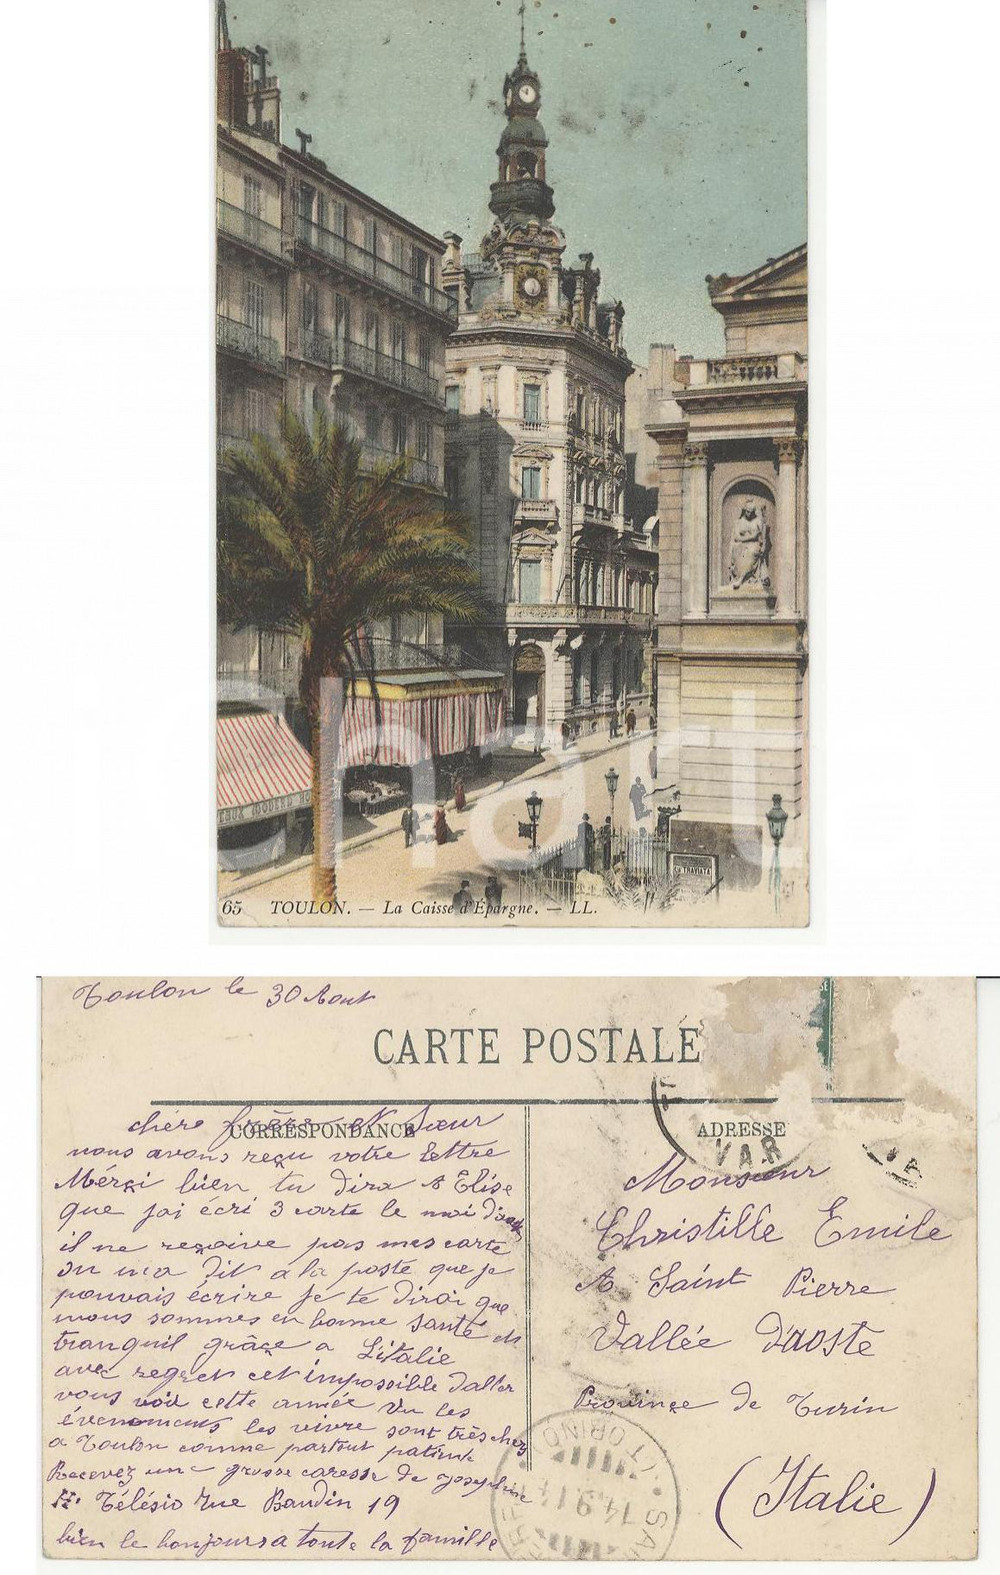 EUX MOUERD
LA TRAVIATA
65 TOULON. — La Caisse d'Épargne. — LL.
Chart
Toulon le 30 Aout
CARTE POSTALE
CORRESPONDANCE
chére frère et Sœur
nous avons reçu votre lettre
Mérçi bien tu dira a Élise
que jai écri 3 carte le moi d'aout
il ne reçoive pas mes carte
on ma dit a la poste que je
pouvais écrire je te dirai que
nous sommes en bonne santé et
tranquil grâçe a Litalie
avec regret cet impossible daller
vous voir cette année vu les
évenements les vivre sont très cher
a Toulon comme partout patiente
Recevez une grosse caresse de Josephine
Télésio rue Baudin 19
bien le bonjour a toute la famille
ADRESSE
VAR
Monsieur
Christille Emile
A Saint Pierre
Vallée D'aoste
Province de Turin
(Italie)
(TORINO)
14.9.14